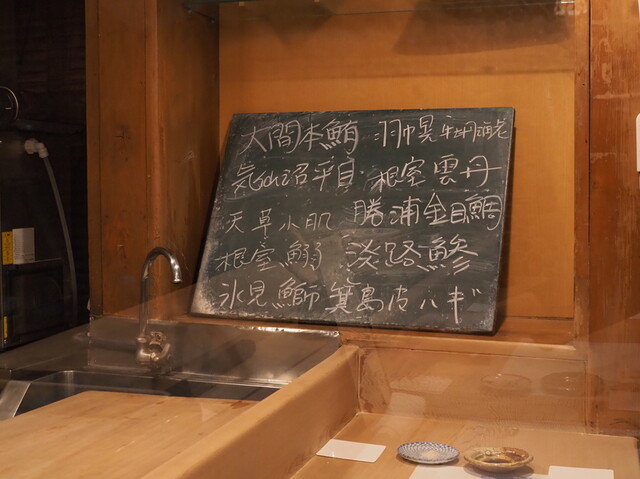 大間本鮪 羽幌牡丹海老
気仙沼平目 根室雲丹
天草小肌 勝浦金目鯛
根室鰯 淡路鰺
氷見鰤 箕島皮ハギ